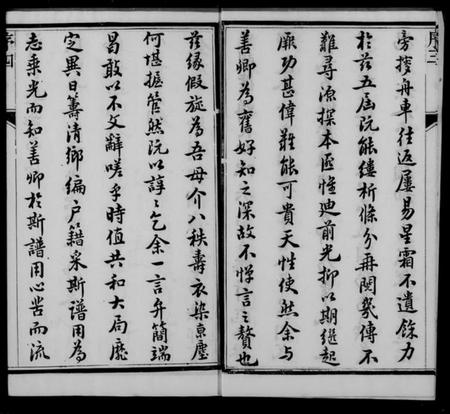 序三
旁搜舟車往返屢易星霜不遺餘力
於茲五屆既能縷析條分再閱幾傳不
難尋源探本匪惟迪前光抑以期繼起
厥功甚偉難能可貴天性使然余與
善卿為舊好知之深故不憚言之贅也
茲緣假旋為吾母介八秩壽衣染京塵
何堪握管然既以諄諄乞余一言弁簡端
曷敢以不文辭嗟乎時值共和大局靡
定異日籌清鄉編戶籍采斯譜用為
志乘光而知善卿於斯譜用心苦而流
序四